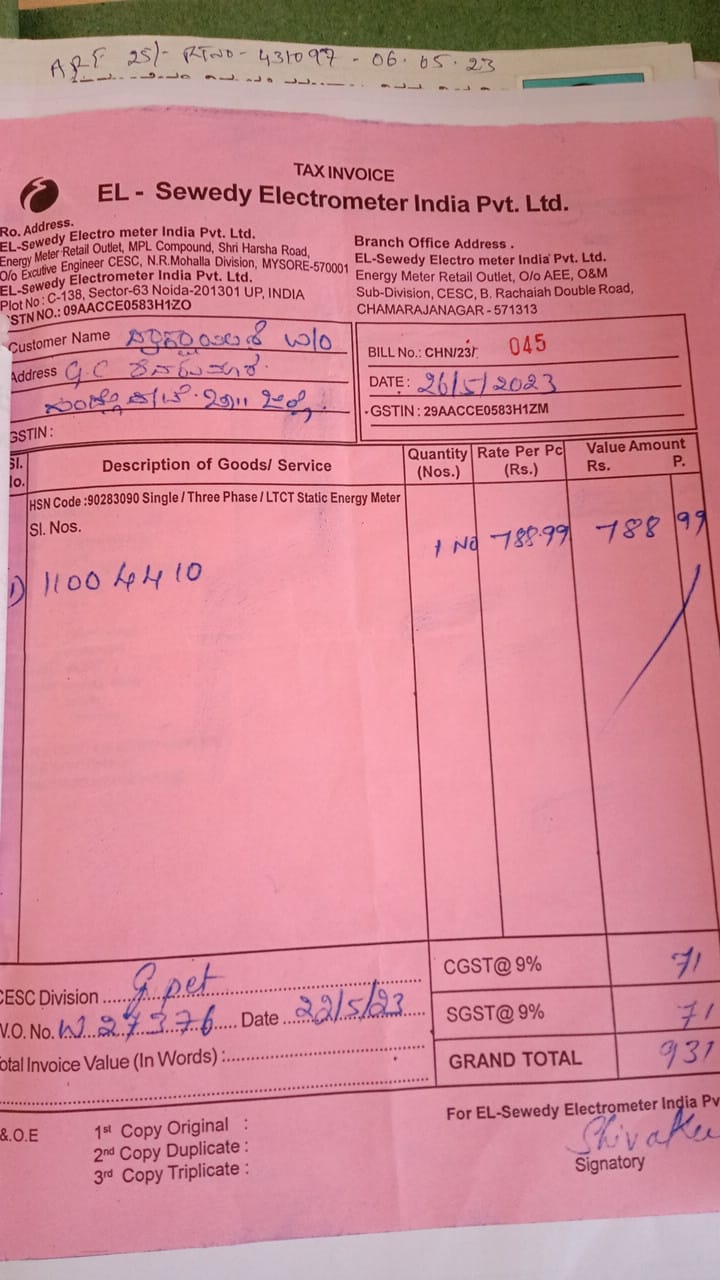 ARF 25/- RTNO - 431097 - 06.05.23
TAX INVOICE
EL - Sewedy Electrometer India Pvt. Ltd.
Ro. Address.
EL-Sewedy Electro meter India Pvt. Ltd.
Energy Meter Retail Outlet, MPL Compound, Shri Harsha Road,
O/o Excutive Engineer CESC, N.R.Mohalla Division, MYSORE-570001
EL-Sewedy Electrometer India Pvt. Ltd.
Plot No : C-138, Sector-63 Noida-201301 UP, INDIA
GSTN NO.: 09AACCE0583H1ZO
Branch Office Address .
EL-Sewedy Electro meter India Pvt. Ltd.
Energy Meter Retail Outlet, O/o AEE, O&M
Sub-Division, CESC, B. Rachaiah Double Road,
CHAMARAJANAGAR - 571313
Customer Name W/o
Address G.C
GSTIN :
BILL No.: CHN/23/ 045
DATE : 26/5/2023
GSTIN : 29AACCE0583H1ZM
Sl. No. Description of Goods/ Service Quantity (Nos.) Rate Per Pc (Rs.) Value Amount Rs. P.
HSN Code :90283090 Single / Three Phase / LTCT Static Energy Meter
Sl. Nos.
1 No 788.99 788 99
1) 11004410
CESC Division G pet
W.O. No. W 27376 Date 22/5/23
Total Invoice Value (In Words) :
CGST@ 9% 71
SGST@ 9% 71
GRAND TOTAL 931
For EL-Sewedy Electrometer India Pv
Signatory
&.O.E
1st Copy Original :
2nd Copy Duplicate :
3rd Copy Triplicate :